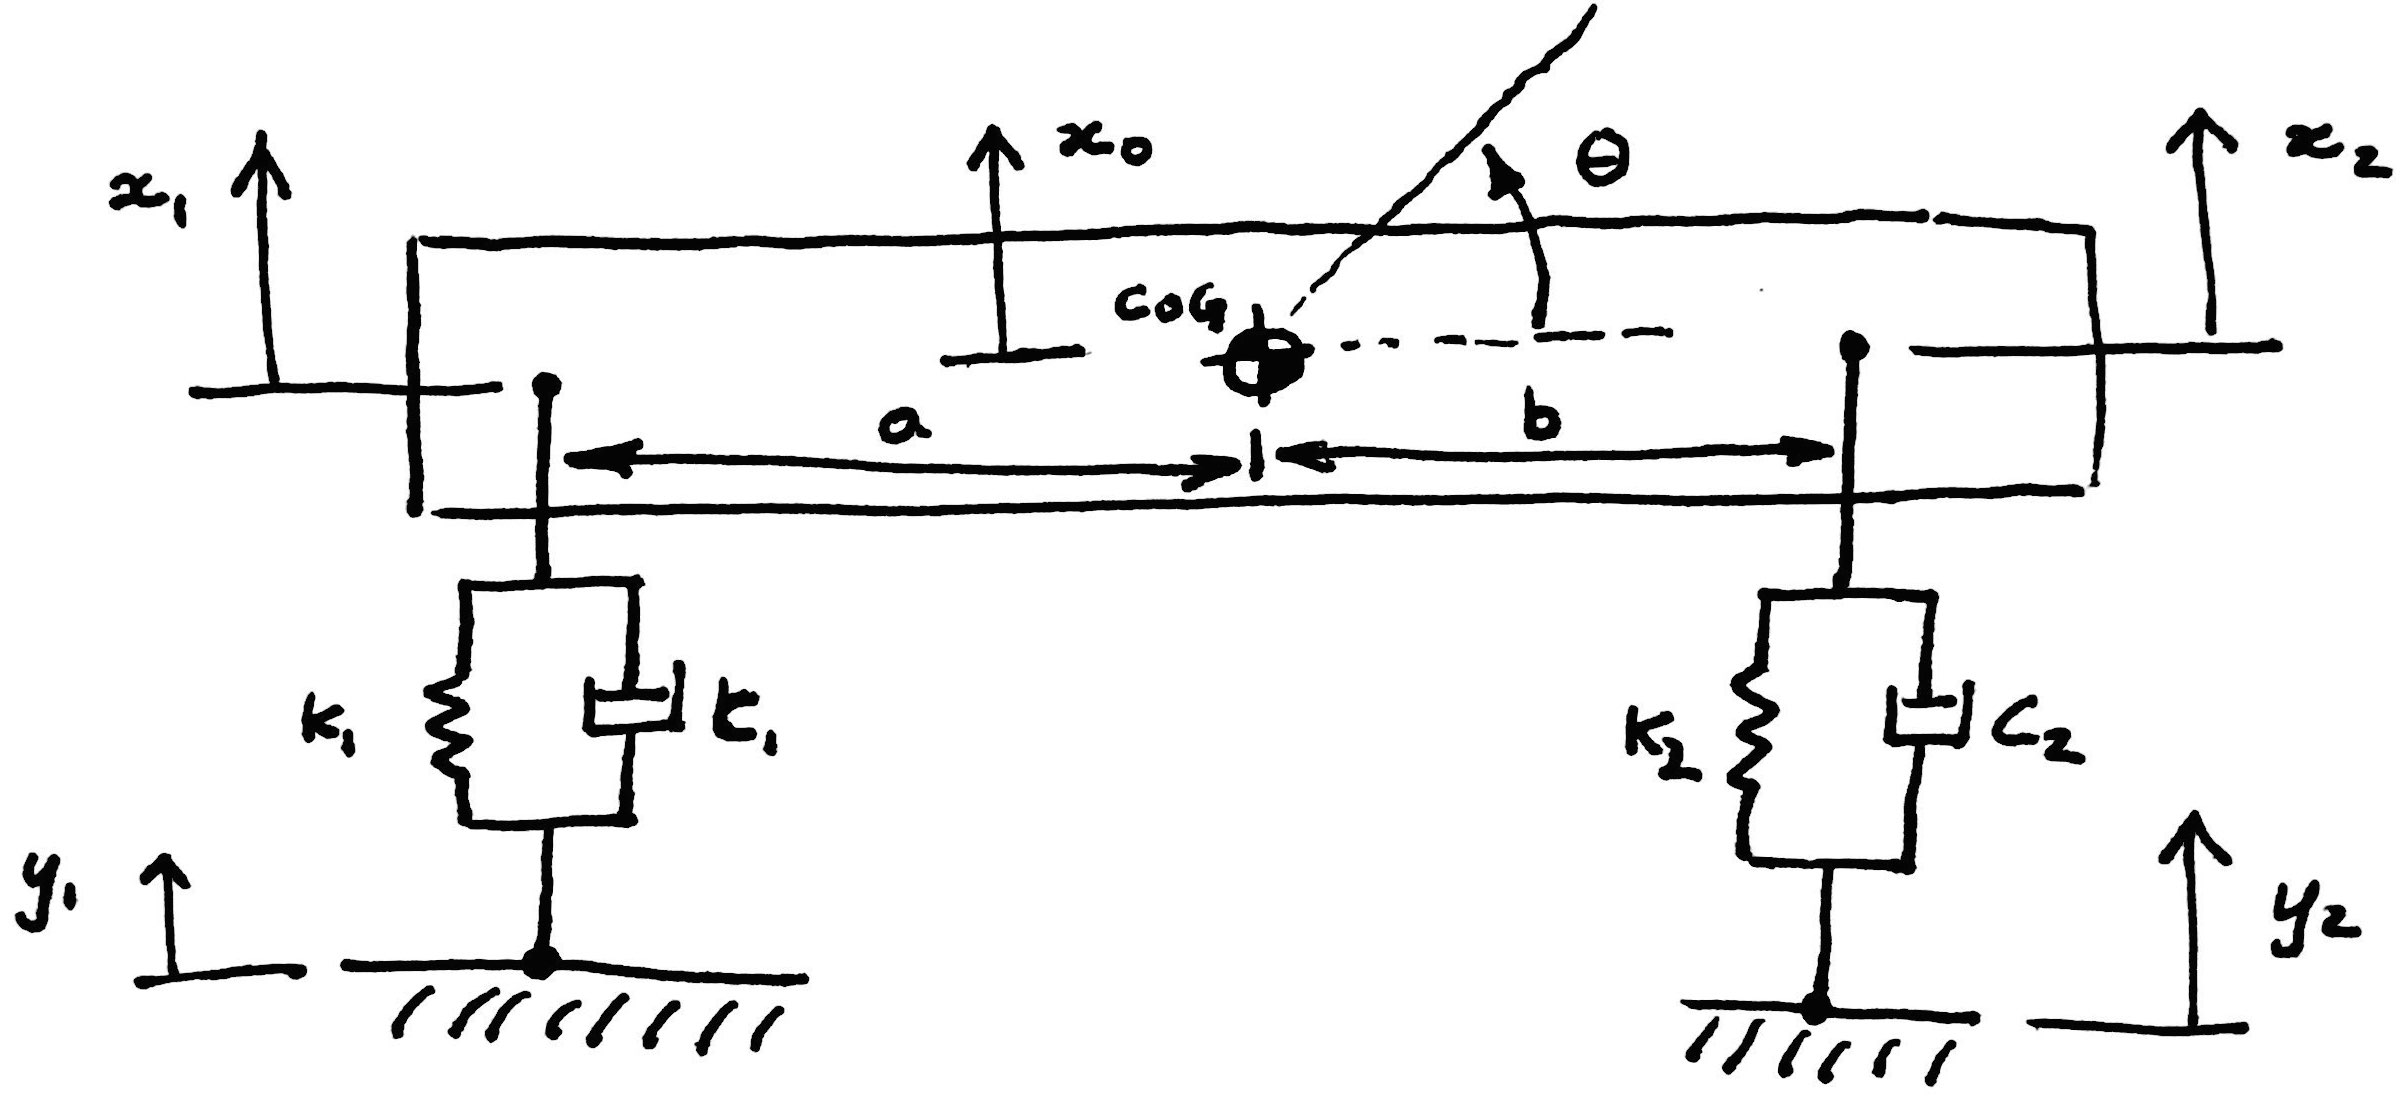 x₁
x₀
θ
x₂
COG
a
b
k₁
c₁
k₂
c₂
y₁
y₂